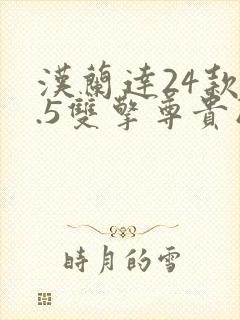 漢蘭達24款
.5雙擎尊貴
時月的雪